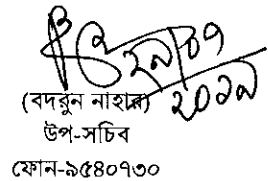 (বদরুন নাহার)
উপ-সচিব
ফোন-৯৫৪০৭৩০